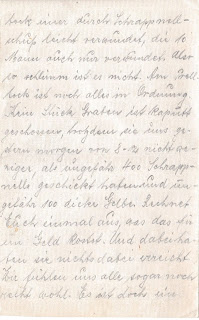 bock einer durch Schrappnell-
schuß leicht verwundet, die 10
Mann auch nur verwundet. Also
so schlimm ist es nicht. Am
bock ist noch alles in Ordnung.
Kein Stück Graben ist kaputt
geschossen, trotzdem sie uns ge-
stern morgen von 8-2 nicht we-
niger, als ungefähr 400 Schrapp-
nelle geschickt haben und un-
gefähr 100 dicke Rechnet
Euch einmal aus, was das die
ein Geld kostet. Und dabei ha-
ben sie nichts dabei erreicht
Wir fühlen uns alle sogar noch
recht wohl. Es ist doch ein